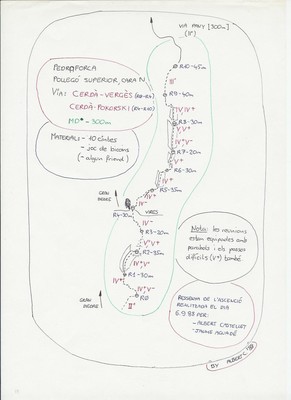 VIA PANY [300m]
(II°)
R10-45m
II°
R9-40m
IV V+
R8-30m
V, V+
IV+
R7-20m
V, V+
R6-30m
IV+
R5-35m
IV-
R4-30m
VIRES
GRAN ARBRE
IV+
R3-20m
V, V+
R2-35m
IV, V
R1-30m
IV+
IV, V-
R0
GRAN ARBRE
II°
PEDRAFORCA
POLLEGÓ SUPERIOR, CARA N
VIA: CERDÀ-VERGÉS (R0-R4)
CERDÀ-POKORSKI (R4-R10)
MD+ - 300m
MATERIAL: - 10 cintes
- joc de bicons
- (algun friend)
Nota: les reunions
estan equipades amb
parabolts i els passos
difícils (V+) també.
RESSENYA DE L'ASCENCIÓ
REALITZADA EL DIA
6.9.98 PER:
- ALBERT CASTELLET
- JAUME AGUADÉ
BY ALBERT C. '98